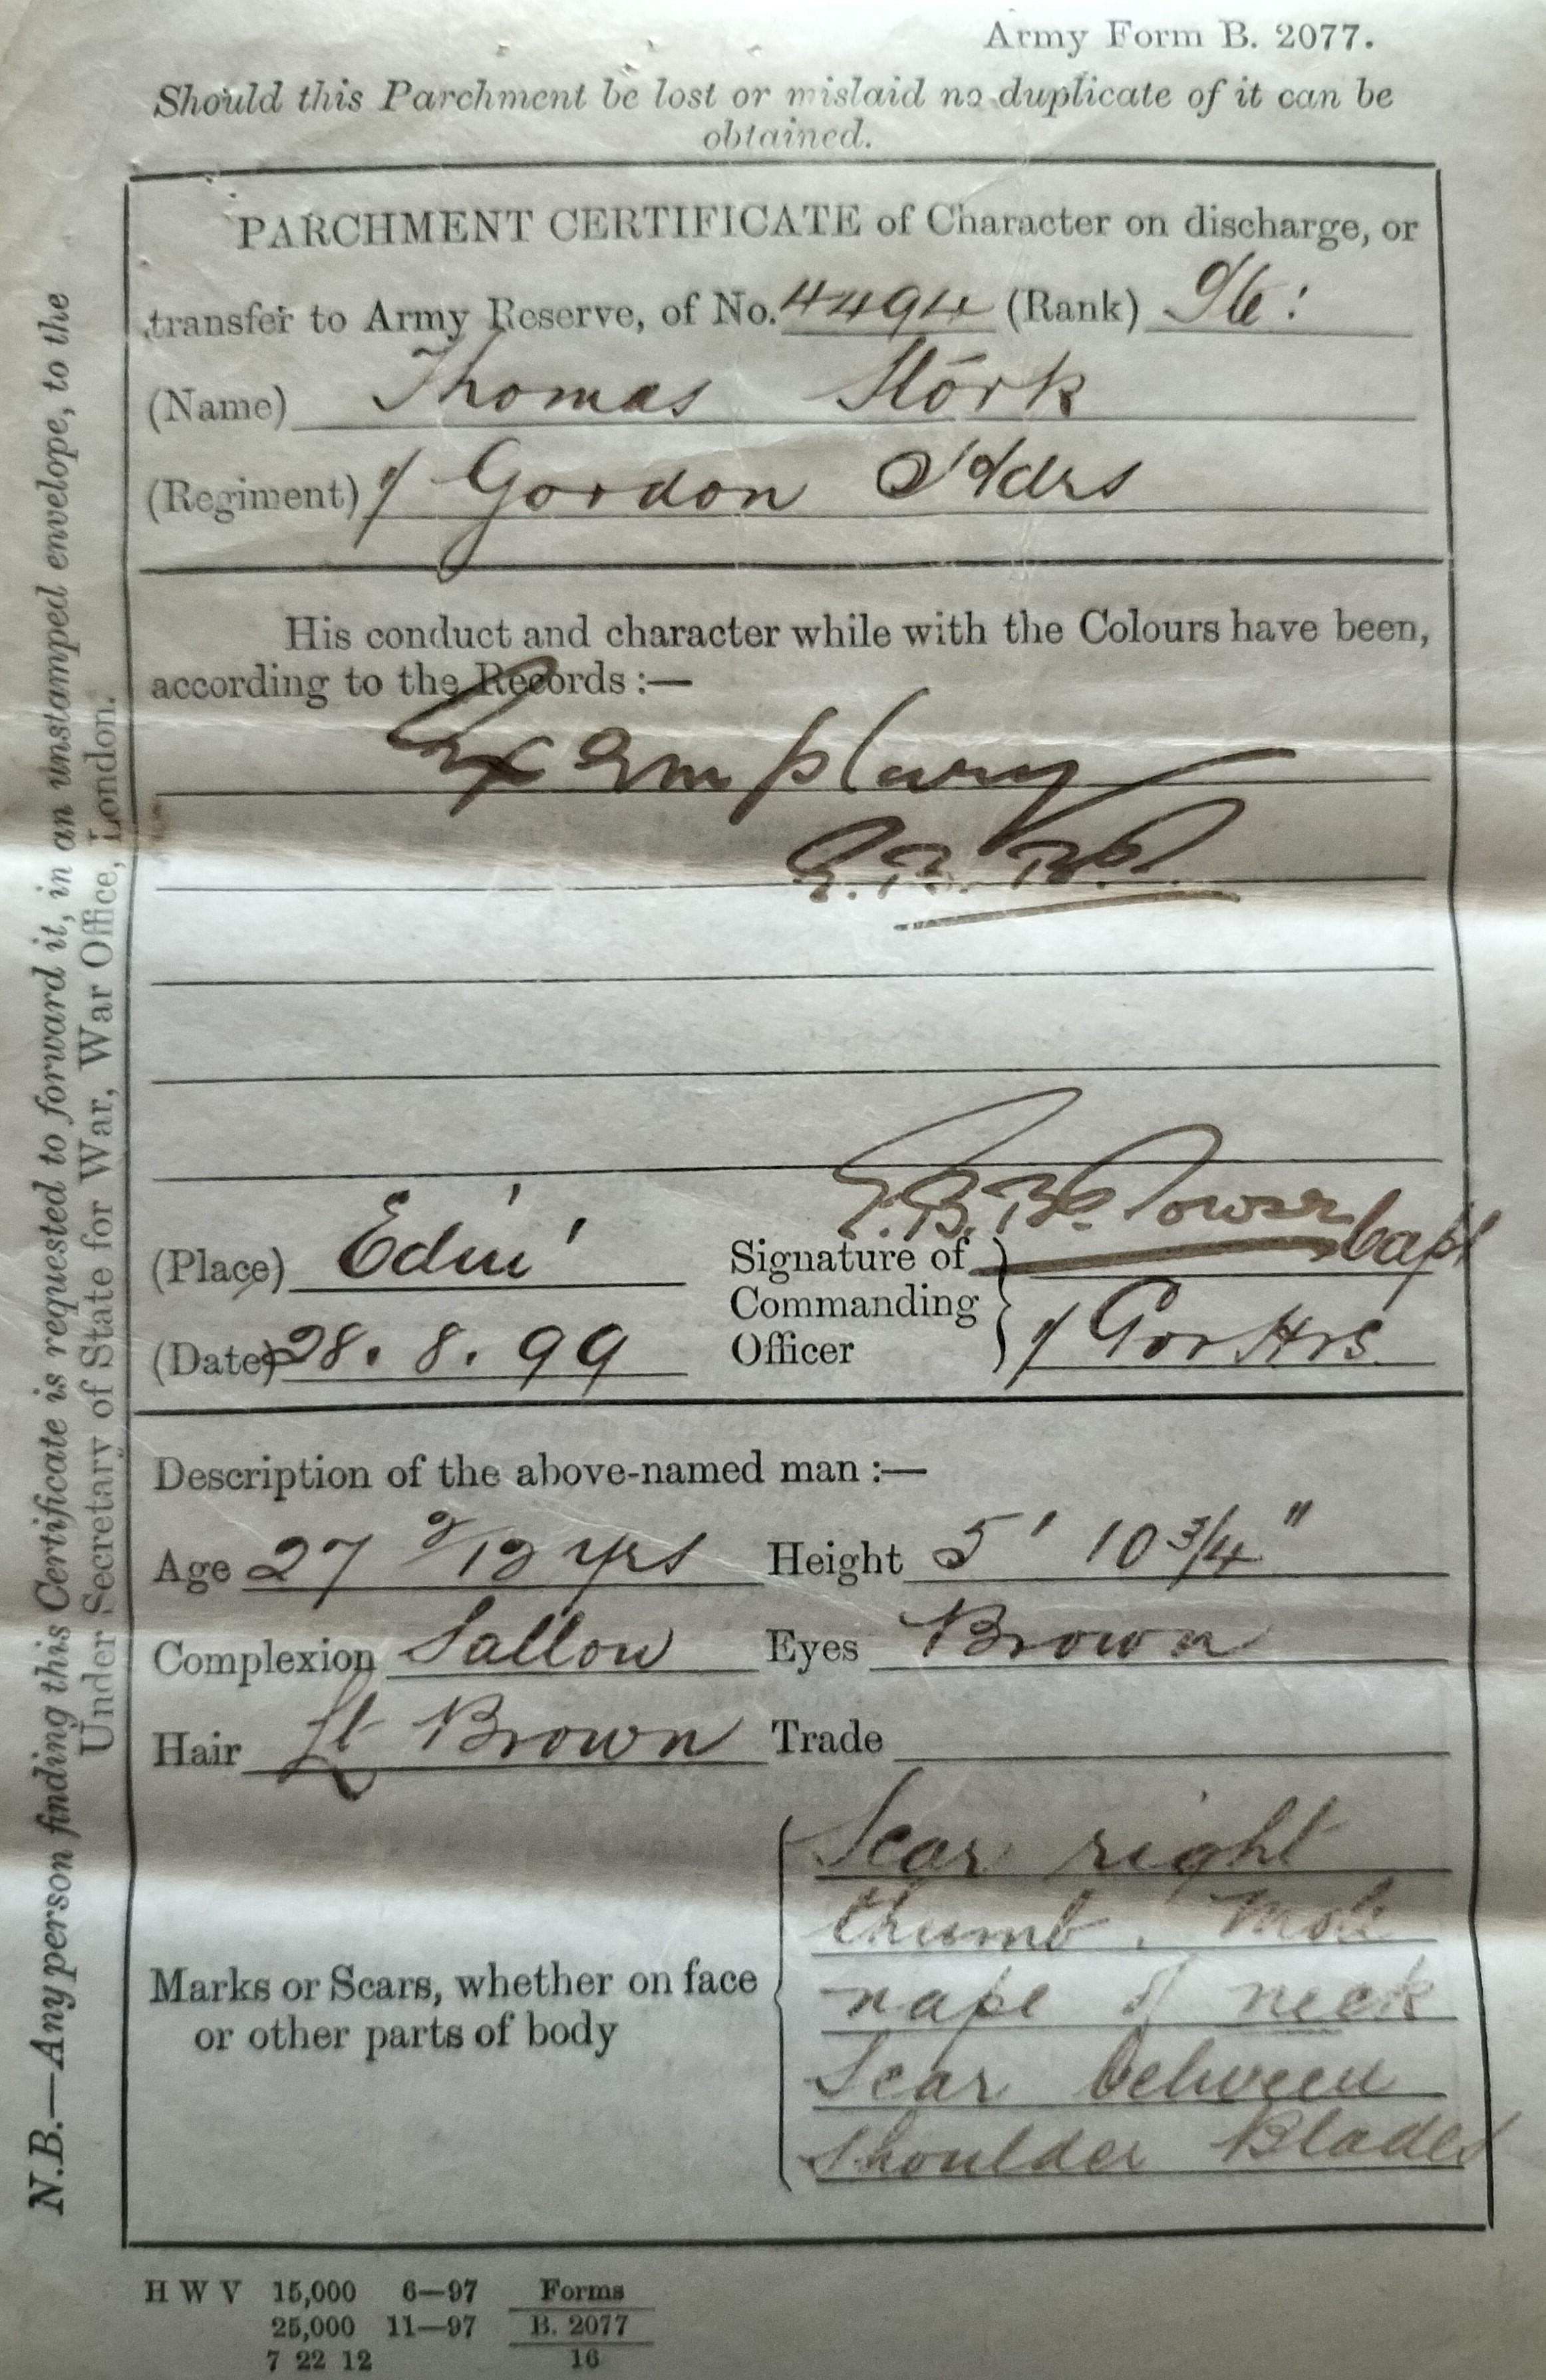 Army Form B. 2077.
Should this Parchment be lost or mislaid no duplicate of it can be
obtained.
PARCHMENT CERTIFICATE of Character on discharge, or
transfer to Army Reserve, of No. 4494 (Rank) Pte:
(Name) Thomas Störk
(Regiment) 1/ Gordon Hdrs
His conduct and character while with the Colours have been,
according to the Records :—
Exemplary
E.B.
E.B. Towse Capt
(Place) Edin'
Signature of
Commanding
Officer
1/ Gor Hrs.
(Date) 28. 8. 99
Description of the above-named man :—
Age 27 2/12 yrs Height 5' 10 3/4"
Complexion Sallow Eyes Brown
Hair Lt Brown Trade
Marks or Scars, whether on face
or other parts of body
Scar right
thumb. Mole
nape of neck
Scar between
shoulder Blades
H W V 15,000 6—97 Forms
25,000 11—97 B. 2077
7 22 12 16
N.B.—Any person finding this Certificate is requested to forward it, in an unstamped envelope, to the
Under Secretary of State for War, War Office, London.